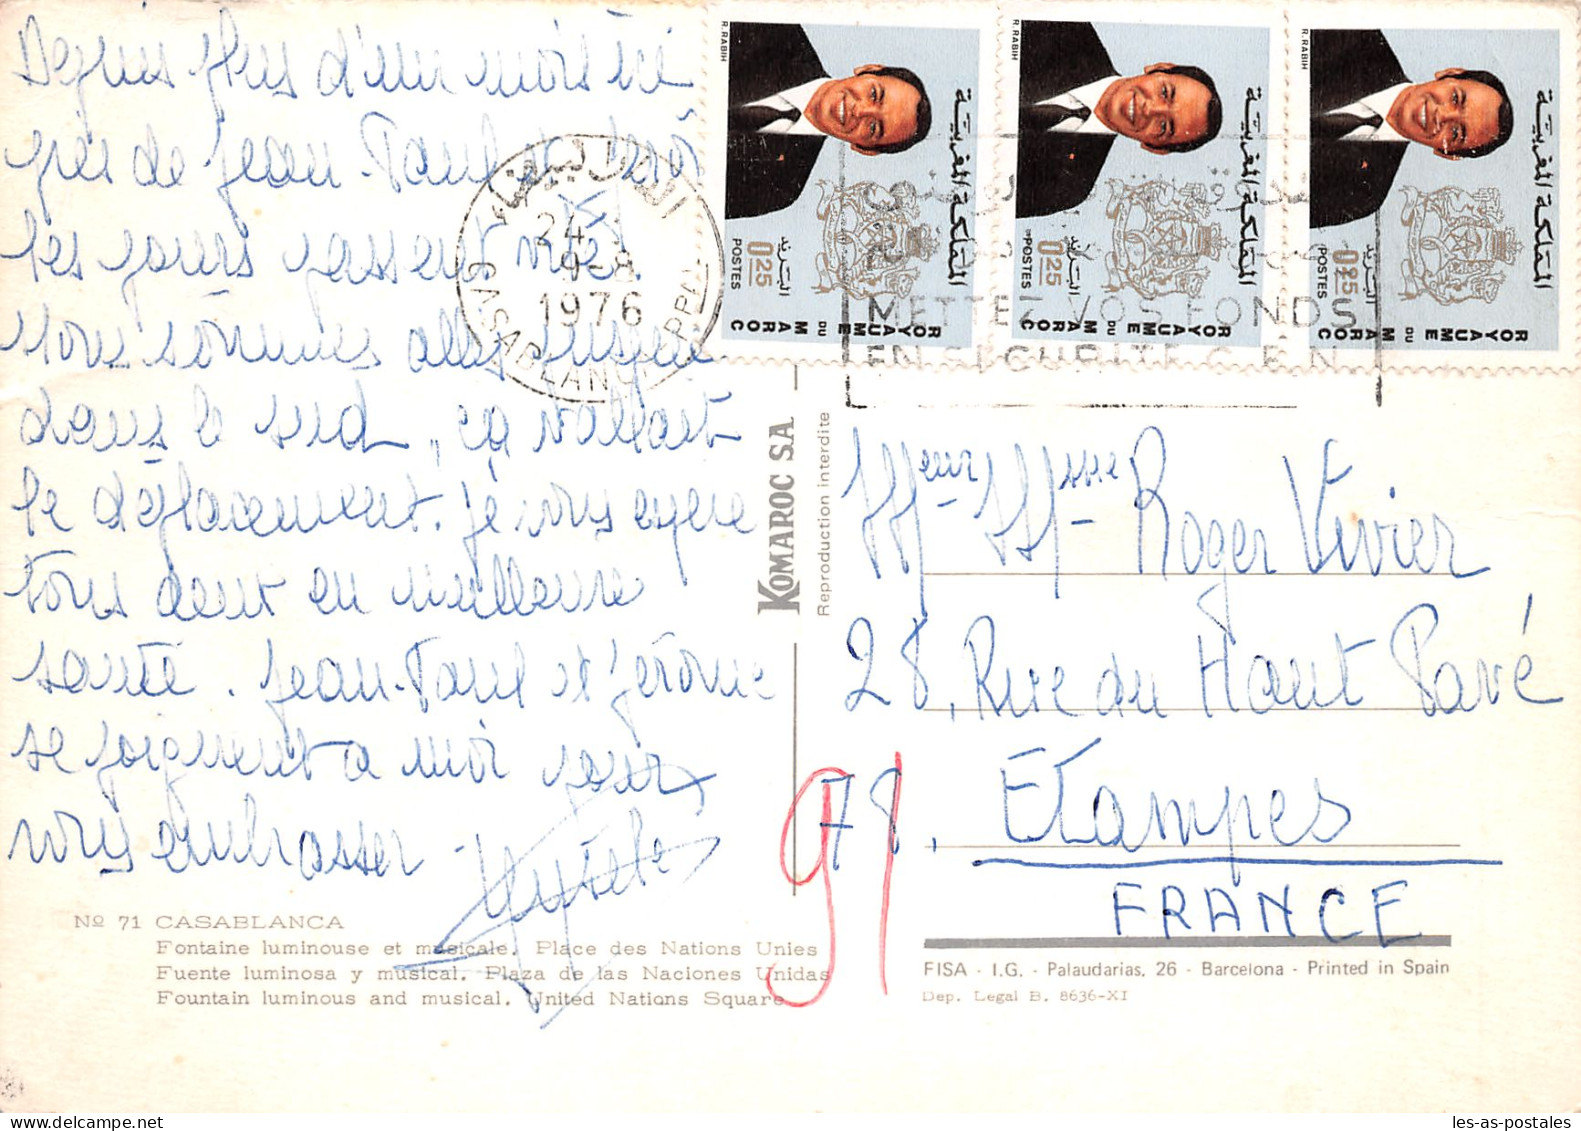 Depuis plus d'un mois ici
près de Jean-Paul et Jérôme
les jours passent vite.
Nous sommes allés jusque
dans le sud, ça vallait
le déplacement. Je vous espère
tous deux en meilleure
santé. Jean-Paul et Jérôme
se joignent à moi pour
vous embrasser.
Nº 71 CASABLANCA
Fontaine luminouse et musicale. Place des Nations Unies
Fuente luminosa y musical. Plaza de las Naciones Unidas
Fountain luminous and musical. United Nations Square
KOMAROC SA
Reproduction interdite
R. RABIH
المملكة المغربية
البريد
0.25
POSTES
ROYAUME DU MAROC
R. RABIH
المملكة المغربية
البريد
0.25
POSTES
ROYAUME DU MAROC
R. RABIH
المملكة المغربية
البريد
0.25
POSTES
ROYAUME DU MAROC
24
1976
CASABLANCA PPAL
METTEZ VOS FONDS
EN SECURITE C.E.N.
Roger Vivier
28, Rue du Haut Pavé
78, Etampes
91
FRANCE
FISA - I.G. - Palaudarias, 26 - Barcelona - Printed in Spain
Dep. Legal B. 8636-XI
les-as-postales